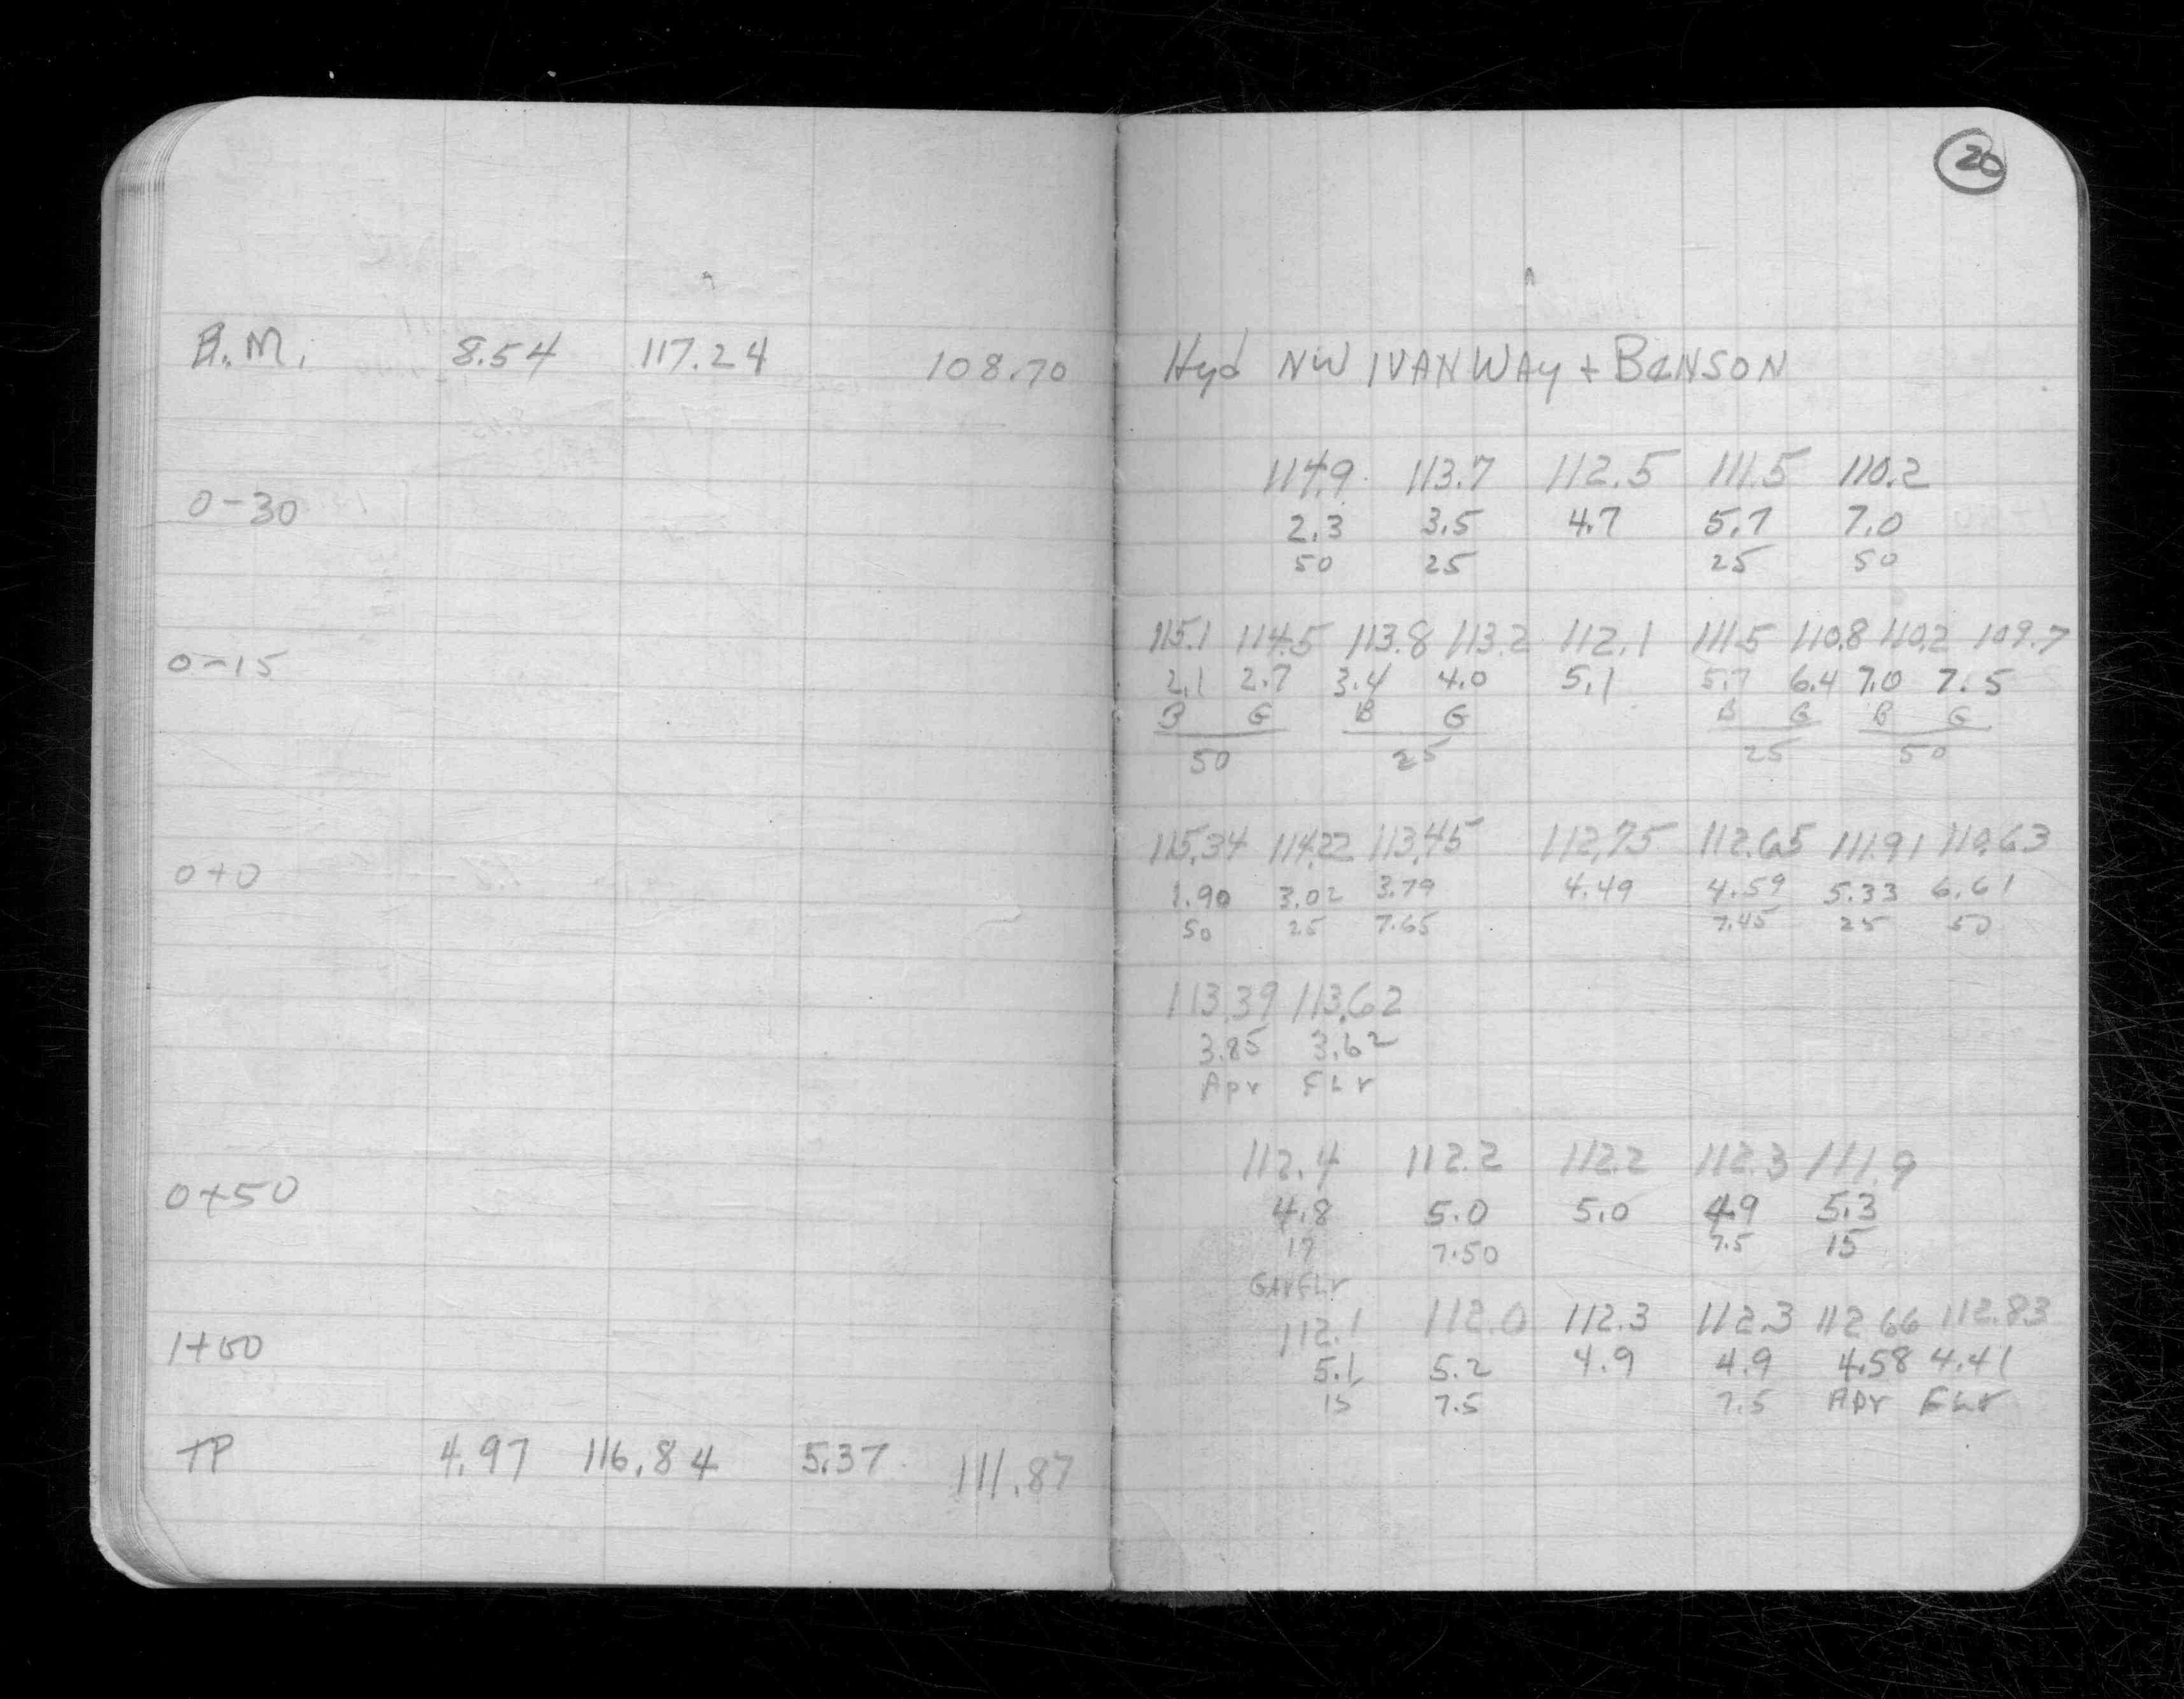 20
B.M. 8.54 117.24 108.70 Hyd NW IVAN WAY + BENSON
114.9 113.7 112.5 111.5 110.2
0-30 2.3 3.5 4.7 5.7 7.0
50 25 25 50
115.1 114.5 113.8 113.2 112.1 111.5 110.8 110.2 109.7
0-15 2.1 2.7 3.4 4.0 5.1 5.7 6.4 7.0 7.5
B G B G B G B G
50 25 25 50
115.34 114.22 113.45 112.75 112.65 111.91 110.63
0+0 1.90 3.02 3.79 4.49 4.59 5.33 6.61
50 25 7.65 7.45 25 50
113.39 113.62
3.85 3.62
Apr FLr
112.4 112.2 112.2 112.3 111.9
0+50 4.8 5.0 5.0 4.9 5.3
17 7.50 7.5 15
GarFLr
112.1 112.0 112.3 112.3 112.66 112.83
1+00 5.1 5.2 4.9 4.9 4.58 4.41
15 7.5 7.5 Apr FLr
TP 4.97 116.84 5.37 111.87